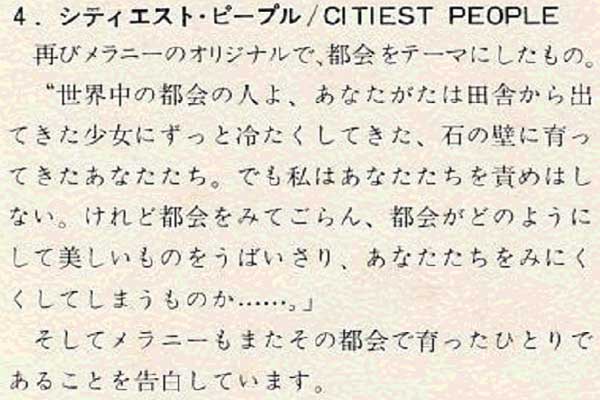 4．シティエスト・ピープル/CITIEST PEOPLE
再びメラニーのオリジナルで、都会をテーマにしたもの。
“世界中の都会の人よ、あなたがたは田舎から出
てきた少女にずっと冷たくしてきた、石の壁に育っ
てきたあなたたち。でも私はあなたたちを責めはし
ない。けれど都会をみてごらん、都会がどのように
して美しいものをうばいさり、あなたたちをみにく
くしてしまうものか……。」
そしてメラニーもまたその都会で育ったひとりで
あることを告白しています。